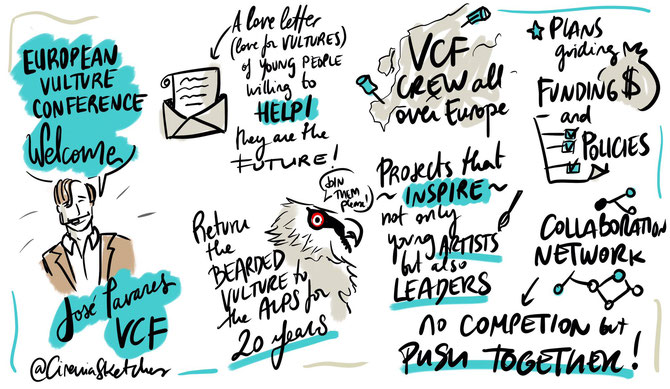 EUROPEAN
VULTURE
CONFERENCE
Welcome
José Tavares
VCF
@CireniaSketches
A love letter
(love for VULTURES)
of young PEOPLE
willing to
HELP!
They are the
FUTURE!
Return
the
BEARDED
VULTURE to
the ALPS for
20 years
JOIN
THEM
please!
VCF
CREW all
over Europe
Projects that
~INSPIRE~
not only
young ARTISTS
but also
LEADERS
PLANS
guiding
FUNDING $
and
POLICIES
COLLABORATION
NETWORK
NO COMPETION but
PUSH TOGETHER!